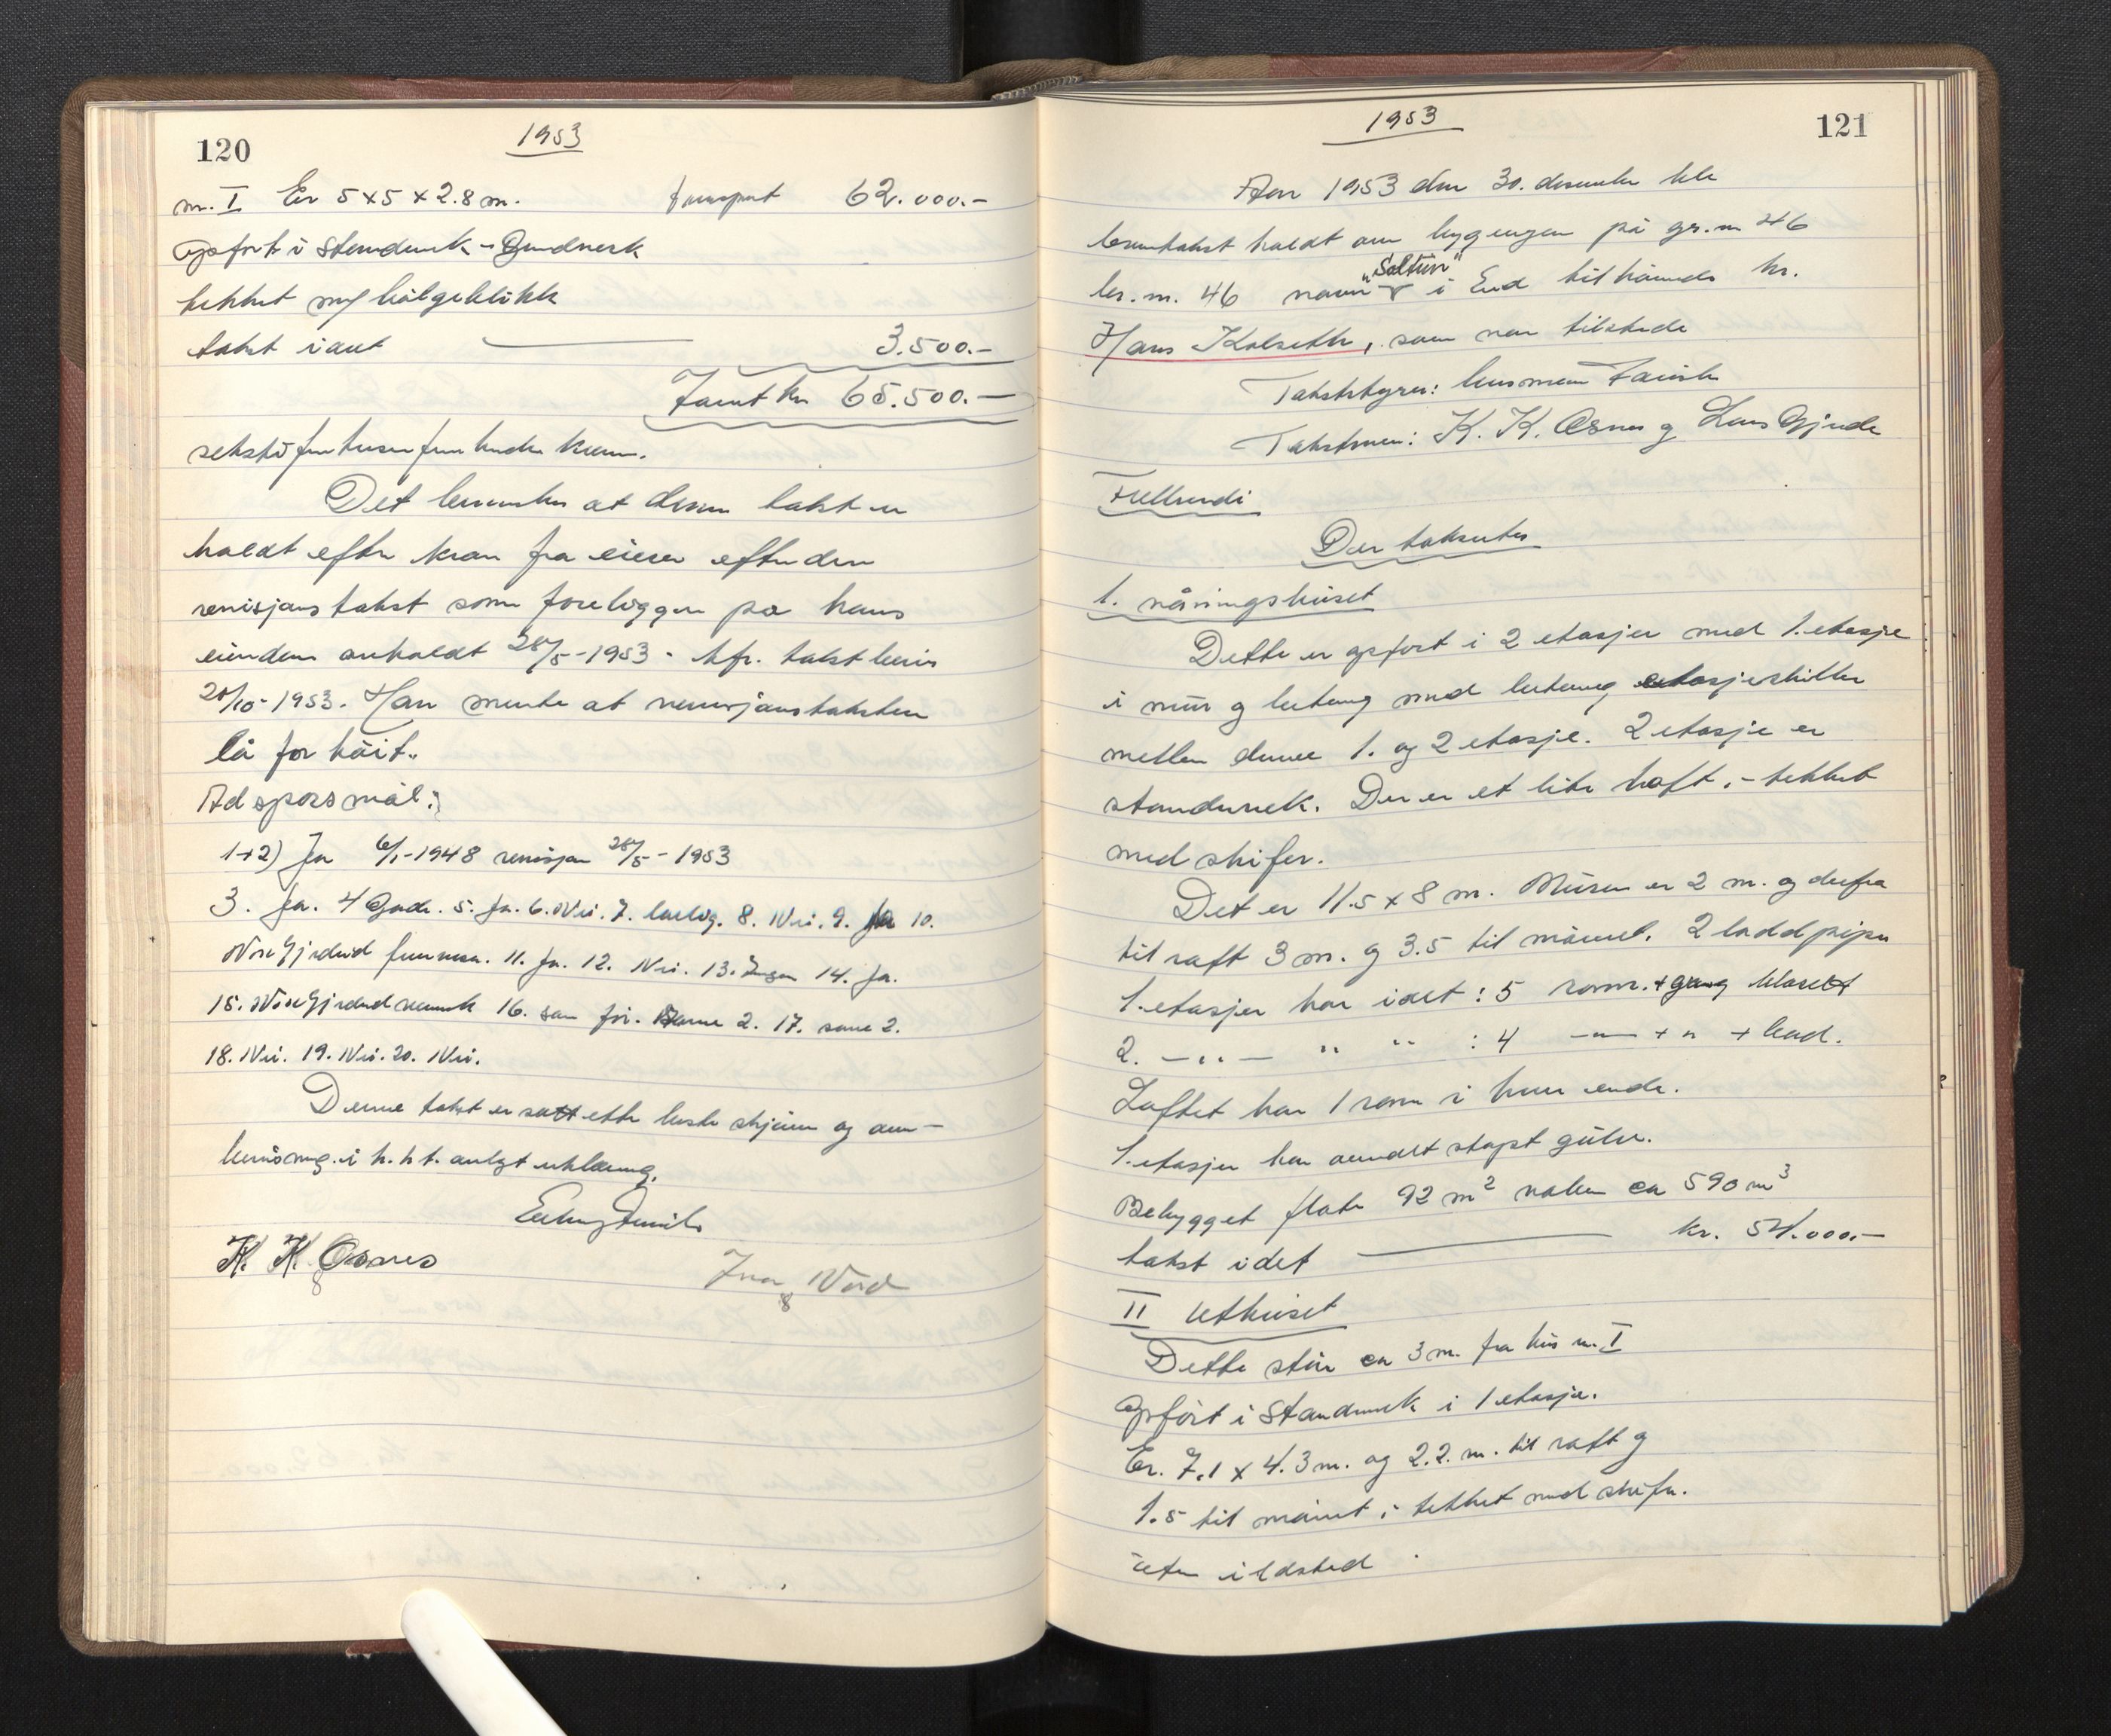 120
1953
nr. I Er 5 x 5 x 2.8 m. transport 62.000.-
Opført i standverk - Bindverk
tekket m/ bølgeblikk
takst i alt 3.500.-
Samt kr 65.500.-
sekstifemtusenfemhundre kroner.
Det bemerkes at denne takst er
holdt efter krav fra eieren efter den
revisjonstakst som foreligger på hans
eiendom avholdt 28/5-1953 - kfr. takst bevis
20/10-1953. Han mente at revisjonstaksten
lå for høit.
Ad spørsmål:
1+2) Ja 6/1-1948 revisjon 28/5-1953
3. Ja. 4 Gode. 5. Ja. 6. Nei. 7. 8. Nei. 9. Ja 10.
11. Ja. 12. Nei. 13. Ingen 14. Ja.
15. 16. som før. 2. 17. same 2.
18. Nei. 19. Nei. 20. Nei.
Denne takst er satt etter beste skjønn og over-
bevisning i h. h t. avlagt erklæring.
K. K. Osnes
121
1953
Aar 1953 den 30. desember ble
branntakst holdt over bygningen på gr. nr 46
br. nr. 46 navn "Soltun" i Eid tilhørende hr.
Hans Kolseth, som var tilstede
Takststyrer: lensmann
Takstmenn: K. K. Osnes og Lars Gjerde
Der takseres
1. våningshuset
Dette er opført i 2 etasjer med 1. etasje
i mur og betong med betong etasjeskiller
mellem denne 1. og 2 etasje. 2 etasje er
standverk. Der er et lite loft, - tekket
med skifer.
Det er 11.5 x 8 m. Muren er 2 m. og derfra
til raft 3 m. og 3.5 til mønet. 2 ladd piper
1. etasjen har i det: 5 rom. + gang klosett
2. - " - " " : 4 - " - + " + bad.
Loftet har 1 rom i hver ende.
1. etasjen har overalt støpt gulv.
Bebygget flate 92 m² volum ca 590 m³
takst i det kr. 54.000.-
II Uthuset
Dette står ca 3 m. fra hus nr. I
Opført i standverk i 1 etasje.
Er. 7.1 x 4.3 m. og 2.2. m. til raft og
1.5 til mønet, tekket med skifer.
uten ildsted